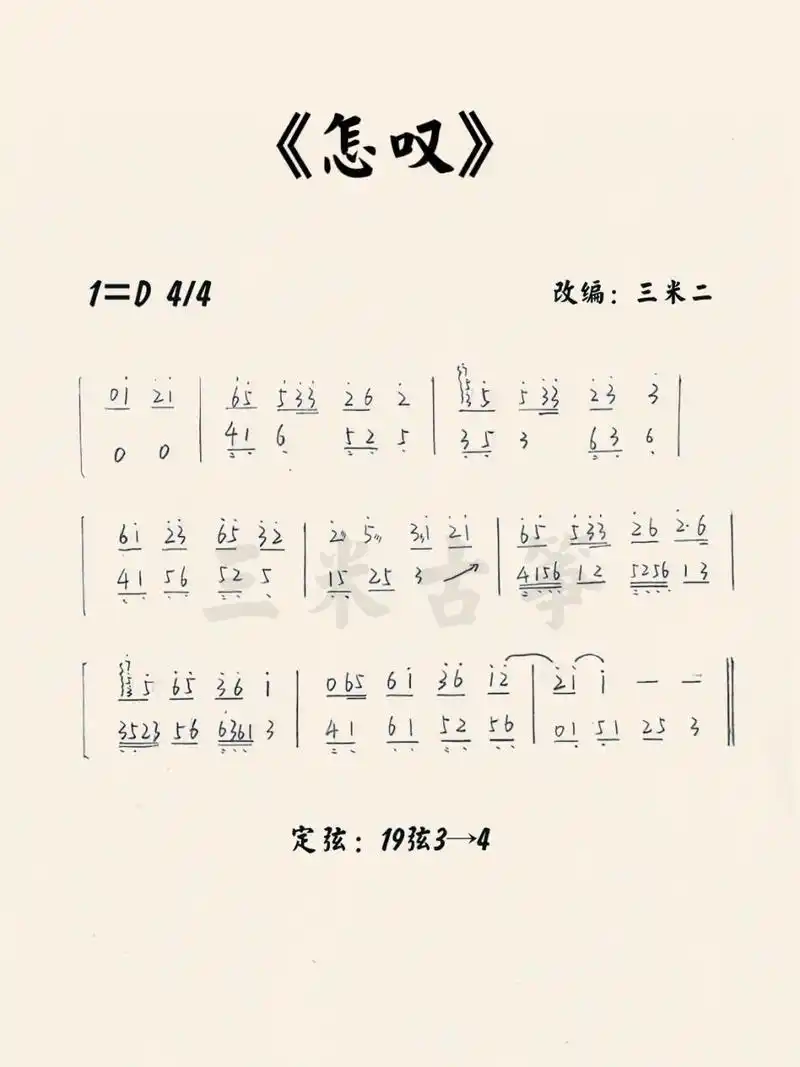 《怎叹》
1=D 4/4
改编：三米二
01 21 | 65 533 26 2 | 35 533 23 3 |
0 0 | 41 6 52 5 | 35 3 63 6 |
61 23 65 32 | 2 5 31 21 | 65 533 26 2·6 |
41 56 52 5 | 15 25 3 ↗ | 4156 12 5256 13 |
三米古筝
5 65 36 1 | 065 61 36 12 | 21 1 — — ‖
3523 56 6361 3 | 41 61 52 56 | 01 51 25 3 ‖
定弦：19弦3→4